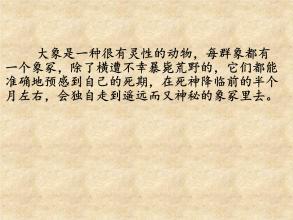 大象是一种很有灵性的动物，每群象都有
一个象冢，除了横遭不幸暴毙荒野的，它们都能
准确地预感到自己的死期，在死神降临前的半个
月左右，会独自走到遥远而又神秘的象冢里去。